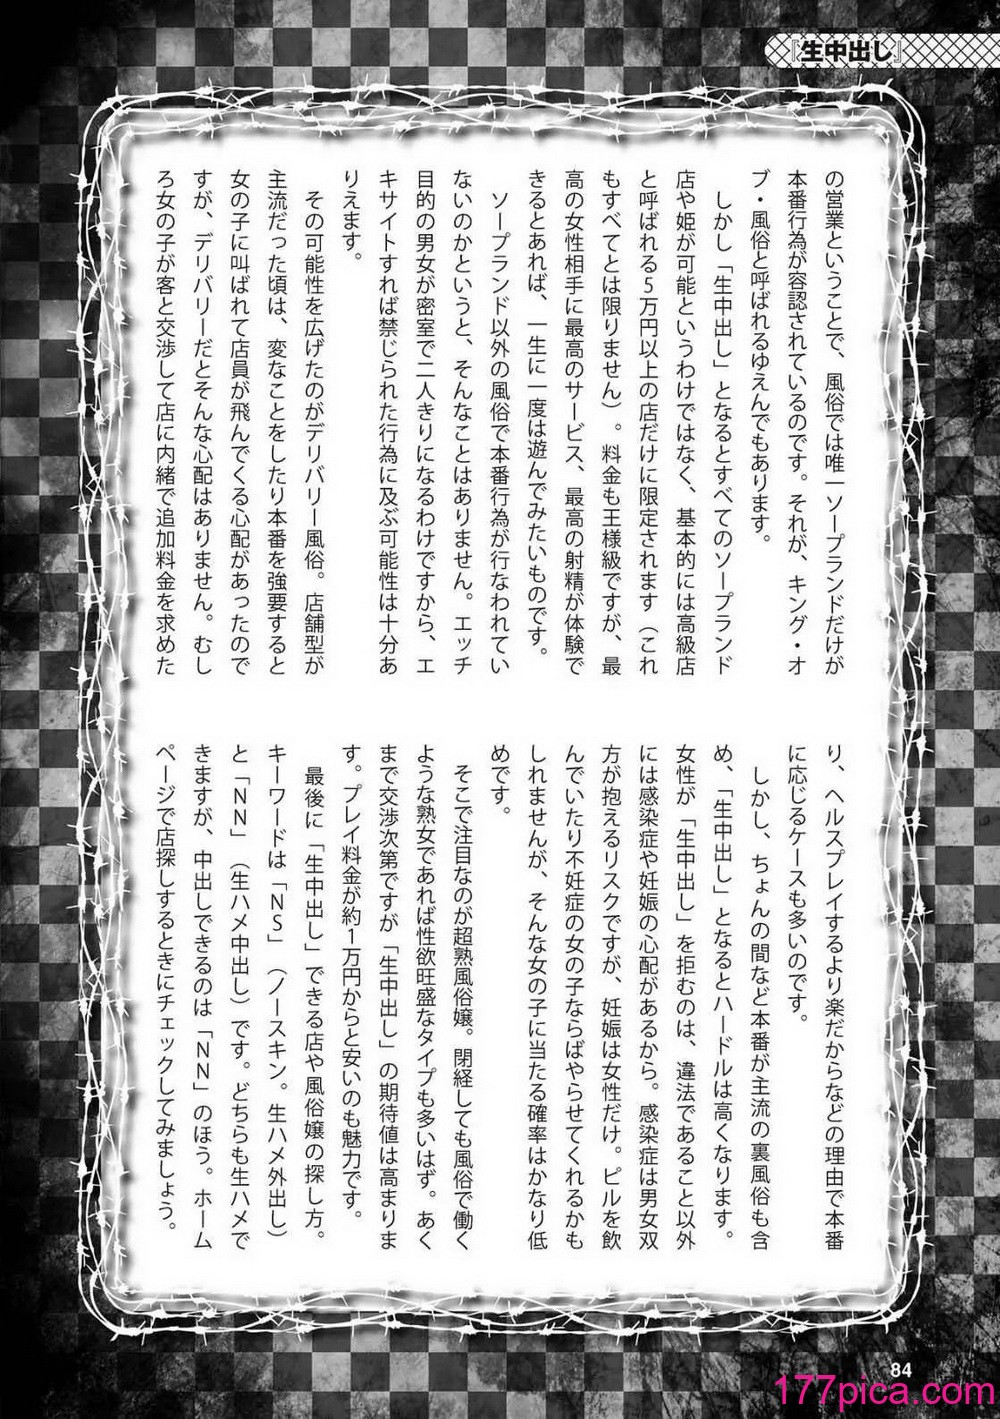 『生中出し』
の営業ということで、風俗では唯一ソープランドだけが
本番行為が容認されているのです。それが、キング・オ
ブ・風俗と呼ばれるゆえんでもあります。
しかし「生中出し」となるとすべてのソープランド
店や姫が可能というわけではなく、基本的には高級店
と呼ばれる5万円以上の店だけに限定されます（これ
もすべてとは限りません）。料金も王様級ですが、最
高の女性相手に最高のサービス、最高の射精が体験で
きるとあれば、一生に一度は遊んでみたいものです。
ソープランド以外の風俗で本番行為が行なわれてい
ないのかというと、そんなことはありません。エッチ
目的の男女が密室で二人きりになるわけですから、エ
キサイトすれば禁じられた行為に及ぶ可能性は十分あ
りえます。
その可能性を広げたのがデリバリー風俗。店舗型が
主流だった頃は、変なことをしたり本番を強要すると
女の子に叫ばれて店員が飛んでくる心配があったので
すが、デリバリーだとそんな心配はありません。むし
ろ女の子が客と交渉して店に内緒で追加料金を求めた
り、ヘルスプレイするより楽だからなどの理由で本番
に応じるケースも多いのです。
しかし、ちょんの間など本番が主流の裏風俗も含
め、「生中出し」となるとハードルは高くなります。
女性が「生中出し」を拒むのは、違法であること以外
には感染症や妊娠の心配があるから。感染症は男女双
方が抱えるリスクですが、妊娠は女性だけ。ピルを飲
んでいたり不妊症の女の子ならばやらせてくれるかも
しれませんが、そんな女の子に当たる確率はかなり低
めです。
そこで注目なのが超熟風俗嬢。閉経しても風俗で働く
ような熟女であれば性欲旺盛なタイプも多いはず。あく
まで交渉次第ですが「生中出し」の期待値は高まりま
す。プレイ料金が約1万円からと安いのも魅力です。
最後に「生中出し」できる店や風俗嬢の探し方。
キーワードは「NS」（ノースキン。生ハメ外出し）
と「NN」（生ハメ中出し）です。どちらも生ハメで
きますが、中出しできるのは「NN」のほう。ホーム
ページで店探しするときにチェックしてみましょう。
84
177pica.com